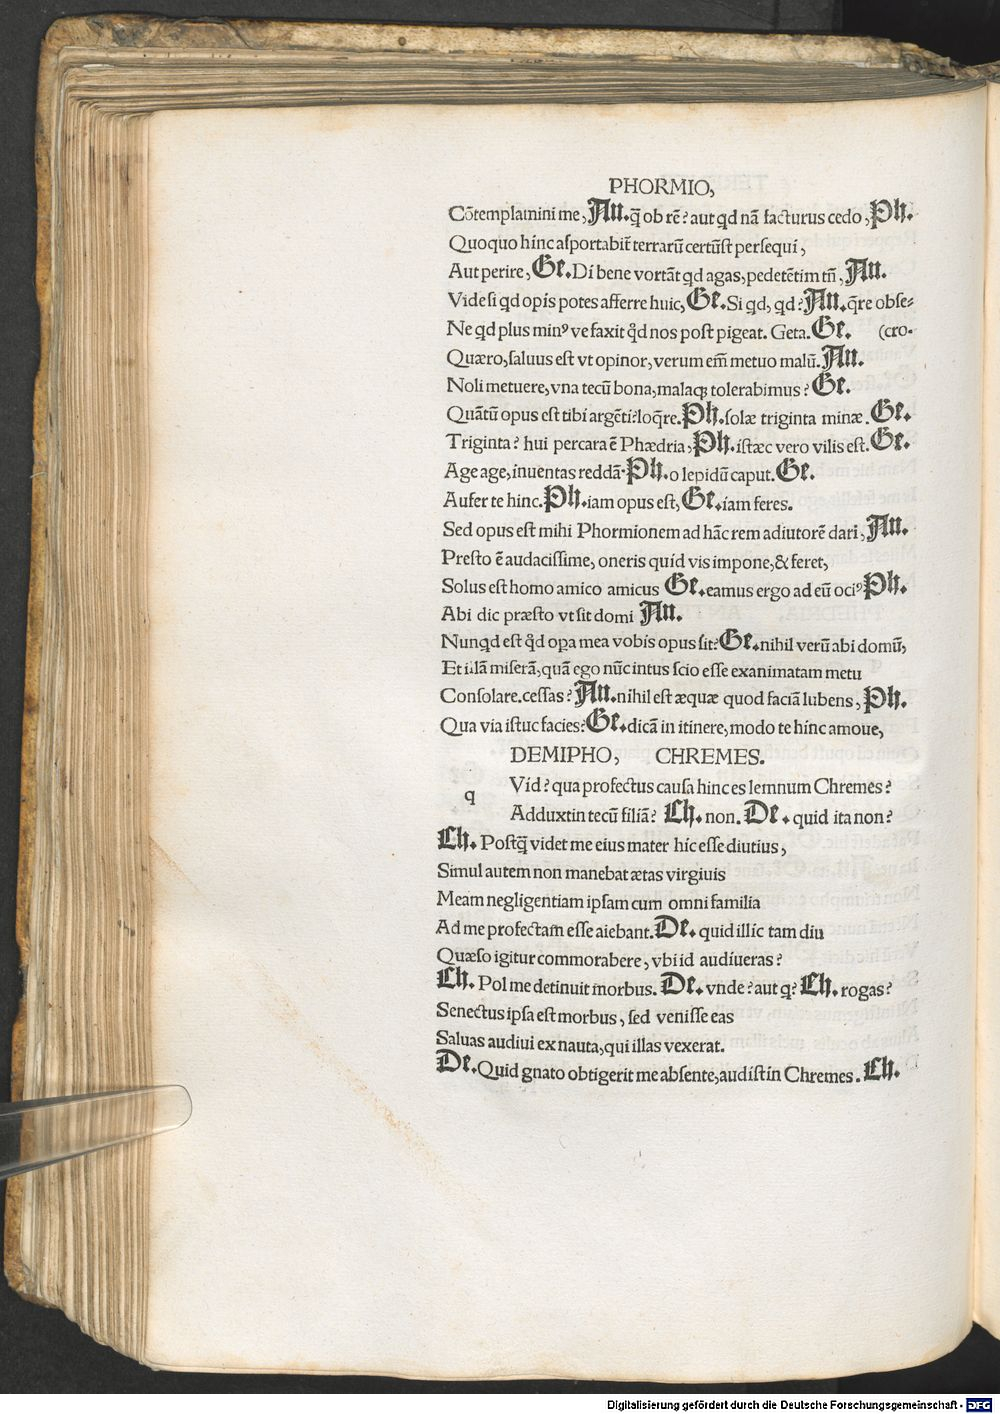 PHORMIO,
Cōtemplamini me, An. q̄ ob rē? aut qd nā facturus cedo, Ph.
Quoquo hinc asportabit̄ terrarū certūst persequi,
Aut perire, Ge. Di bene vortāt qd agas, pedetētim tn̄, An.
Vide si qd opis potes afferre huic, Ge. Si qd, qd? An. q̄re obse-
Ne qd plus minꝰ ve faxit q̄d nos post pigeat. Geta. Ge. (cro.
Quæro, saluus est vt opinor, verum em̄ metuo malū. An.
Noli metuere, vna tecū bona, malaqꝫ tolerabimus? Ge.
Quātū opus est tibi argēti? loq̄re. Ph. solæ triginta minæ. Ge.
Triginta? hui percara ē Phædria, Ph. istæc vero vilis est. Ge.
Age age, inuentas reddā. Ph. o lepidū caput. Ge.
Aufer te hinc. Ph. iam opus est, Ge. iam feres.
Sed opus est mihi Phormionem ad hāc rem adiutorē dari, An.
Presto ē audacissime, oneris quid vis impone, & feret,
Solus est homo amico amicus Ge. eamus ergo ad eū ociꝰ Ph.
Abi dic præsto vt sit domi An.
Nunqd est q̄d opa mea vobis opus sit? Ge. nihil verū abi domū,
Et illā miserā, quā ego nūc intus scio esse exanimatam metu
Consolare. cessas? An. nihil est æquæ quod faciā lubens, Ph.
Qua via istuc facies? Ge. dicā in itinere, modo te hinc amoue,
DEMIPHO, CHREMES.
q Vid? qua profectus causa hinc es lemnum Chremes?
Adduxtin tecū filiā? Ch. non. De. quid ita non?
Ch. Postq̄ videt me eius mater hic esse diutius,
Simul autem non manebat ætas virgiuis
Meam negligentiam ipsam cum omni familia
Ad me profectam̄ esse aiebant. De. quid illic tam diu
Quæso igitur commorabere, vbi id audiueras?
Ch. Pol me detinuit morbus. De. vnde? aut q? Ch. rogas?
Senectus ipsa est morbus, sed venisse eas
Saluas audiui ex nauta, qui illas vexerat.
De. Quid gnato obtigerit me absente, audistin Chremes. Ch.
Digitalisierung gefördert durch die Deutsche Forschungsgemeinschaft - DFG